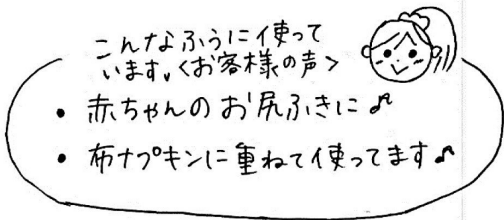 こんなふうに使って
います。<お客様の声>
・赤ちゃんのお尻ふきに♪
・布ナプキンに重ねて使ってます♪